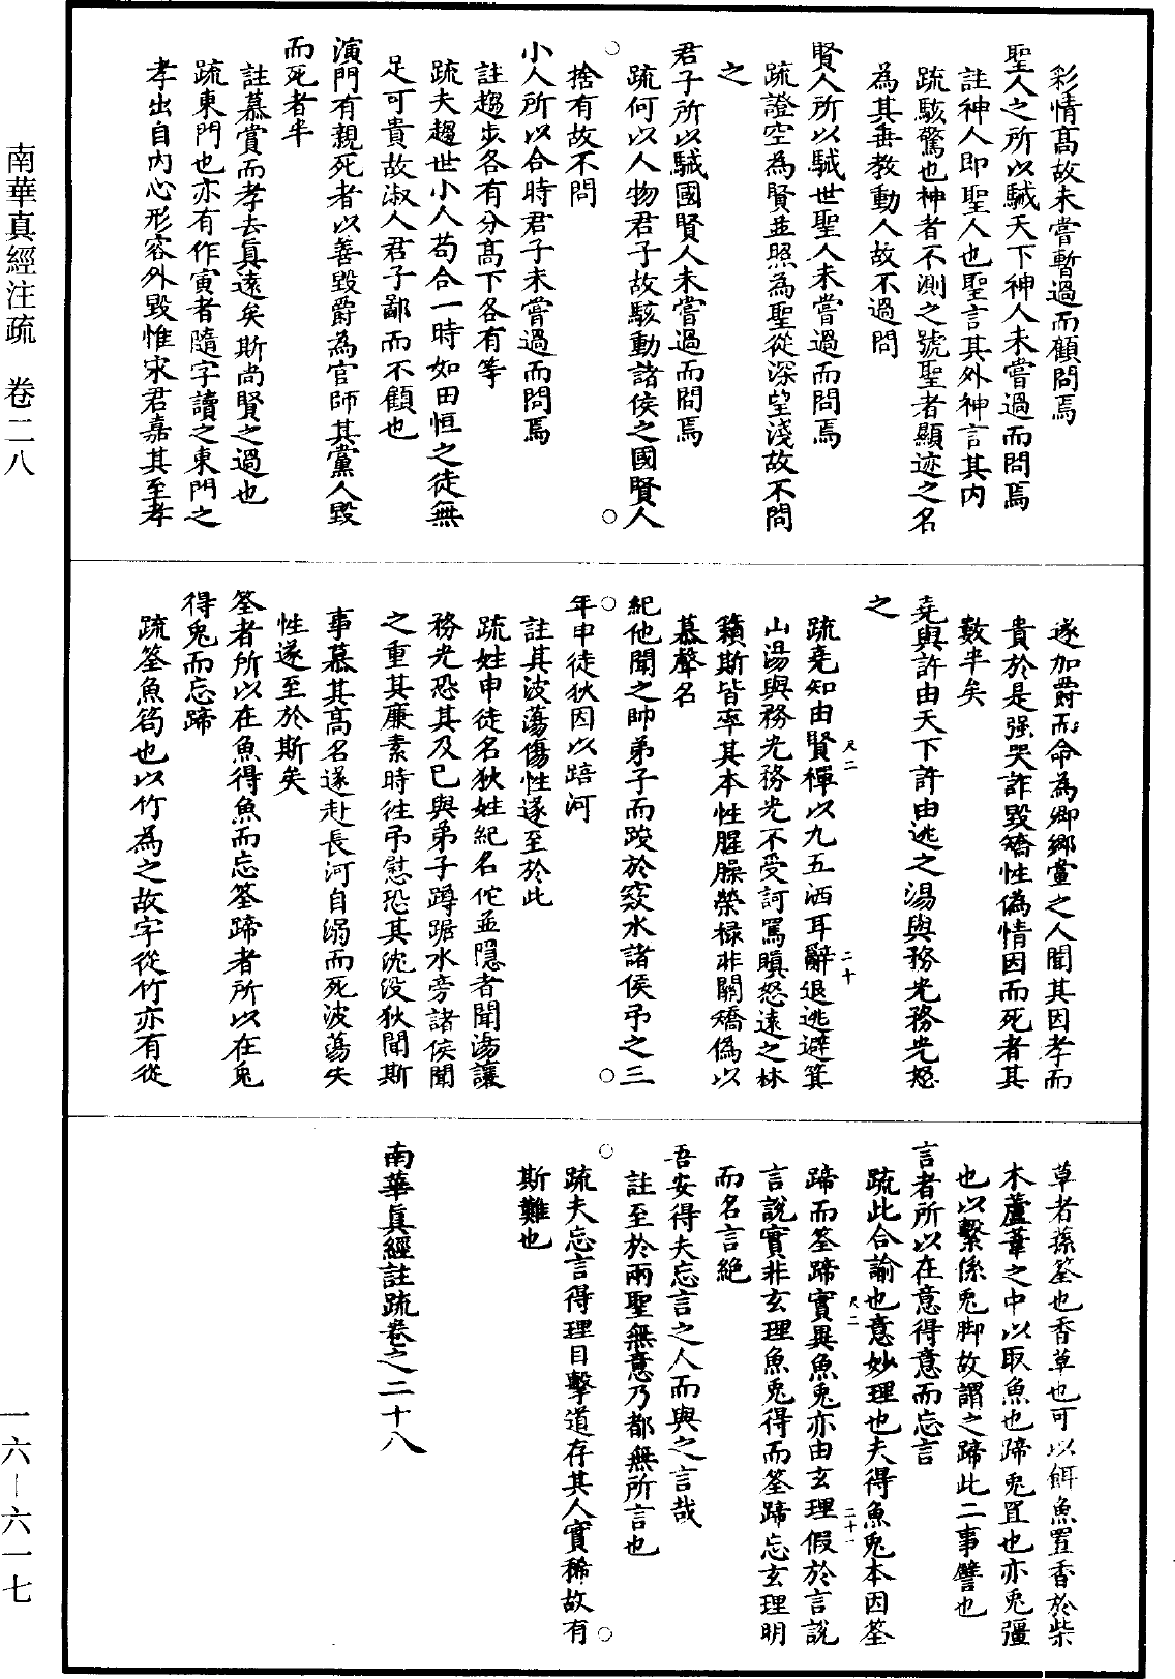 彩情高故未嘗暫過而顧問焉
聖人之所以駴天下神人未嘗過而問焉
註神人即聖人也聖言其外神言其內
疏駭驚也神者不測之號聖者顯迹之名
為其垂教動人故不過問
賢人所以駴世聖人未嘗過而問焉
疏證空為賢並照為聖從深望淺故不問
之
君子所以駴國賢人未嘗過而問焉
疏何以人物君子故駭動諸侯之國賢人
捨有故不問
小人所以合時君子未嘗過而問焉
註趨步各有分高下各有等
疏夫趨世小人苟合一時如田恒之徒無
足可貴故淑人君子鄙而不顧也
演門有親死者以善毀爵為官師其黨人毀
而死者半
註慕賞而孝去真遠矣斯尚賢之過也
疏東門也亦有作寅者隨字讀之東門之
孝出自內心形容外毀惟宋君嘉其至孝
遂加爵而命為卿鄉黨之人聞其因孝而
貴於是强哭詐毀矯性偽情因而死者其
數半矣
堯與許由天下許由逃之湯與務光務光怒
之
疏堯知由賢禪以九五洒耳辭退逃避箕
山湯與務光務光不受訶罵瞋怒遠之林
籟斯皆率其本性腥臊榮祿非關矯偽以
慕聲名
紀他聞之帥弟子而踆於窾水諸侯弔之三
年申徒狄因以踣河
註其波蕩傷性遂至於此
疏姓申徒名狄姓紀名佗並隱者聞湯讓
務光恐其及己與弟子蹲踞水旁諸侯聞
之重其廉素時往弔慰恐其沈没狄聞斯
事慕其高名遂赴長河自溺而死波蕩失
性遂至於斯矣
筌者所以在魚得魚而忘筌蹄者所以在兔
得兔而忘蹄
疏筌魚笱也以竹為之故字從竹亦有從
草者蓀筌也香草也可以餌魚置香於柴
木蘆葦之中以取魚也蹄兔罝也亦兔彊
也以繫係兔脚故謂之蹄此二事譬也
言者所以在意得意而忘言
疏此合諭也意妙理也夫得魚兔本因筌
蹄而筌蹄實異魚兔亦由玄理假於言說
言說實非玄理魚兔得而筌蹄忘玄理明
而名言絕
吾安得夫忘言之人而與之言哉
註至於兩聖無意乃都無所言也
疏夫忘言得理目擊道存其人實稀故有
斯難也
南華真經註疏卷之二十八
尺二
二十
尺二
二十一
南華真經注疏 卷二八
一六—六一七